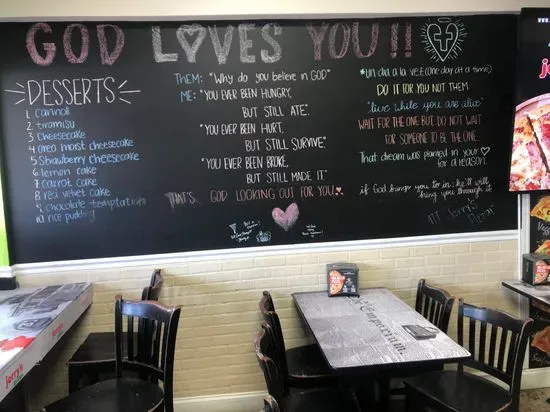 GOD LOVES YOU!!
DESSERTS
1 cannoli
2 tiramisu
3 cheesecake
4 oreo moist cheesecake
5 strawberry cheesecake
6 lemon cake
7 carrot cake
8 red velvet cake
9 chocolate temptation
10 rice pudding
THEM: "Why do you believe in GOD"
ME: "YOU EVER BEEN HUNGRY,
BUT STILL ATE".
"YOU EVER BEEN HURT,
BUT STILL SURVIVE."
"YOU EVER BEEN BROKE,
BUT STILL MADE IT"
THAT'S GOD LOOKING OUT FOR YOU..
*un dia a la vez (one day at a time)
DO IT FOR YOU NOT THEM
"live while you are alive"
WAIT FOR THE ONE BUT DO NOT WAIT
FOR SOMEONE TO BE THE ONE.
That dream was planted in your
for a reason.
if God brings you to it, he'll still
bring you through it
Jerry's
Pizza
Jerry's
Emporium